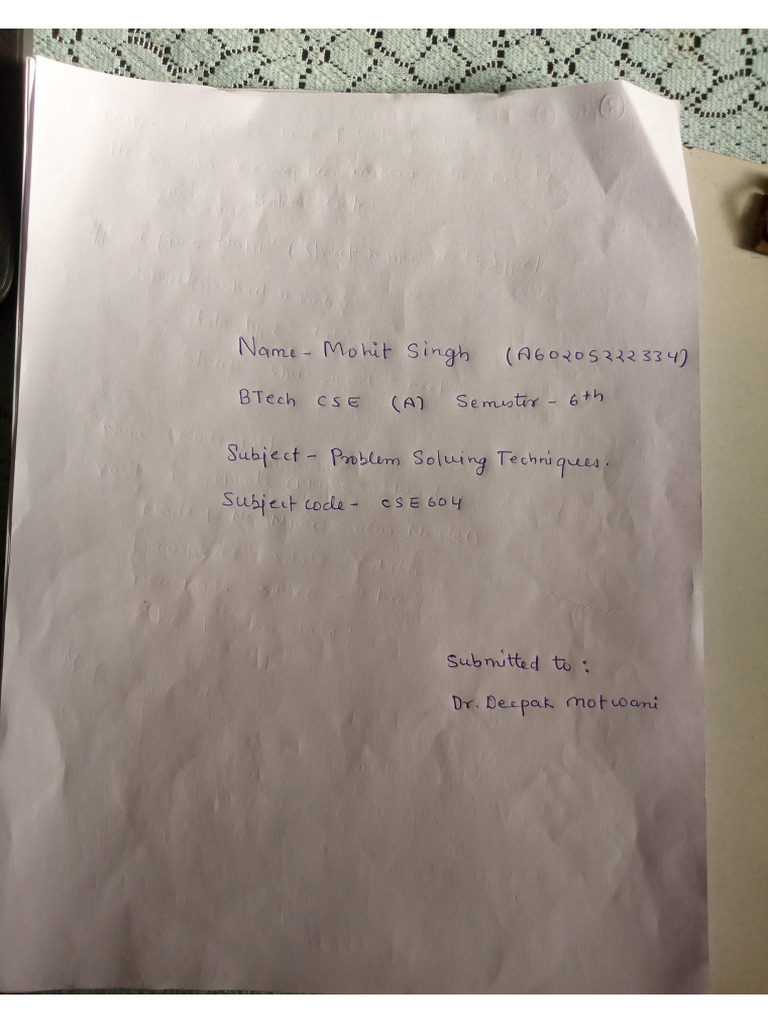 Name - Mohit Singh (A60205222334)
BTech CSE (A) Semester - 6th
Subject - Problem Solving Techniques.
Subject code - CSE604
Submitted to :
Dr. Deepak Motwani